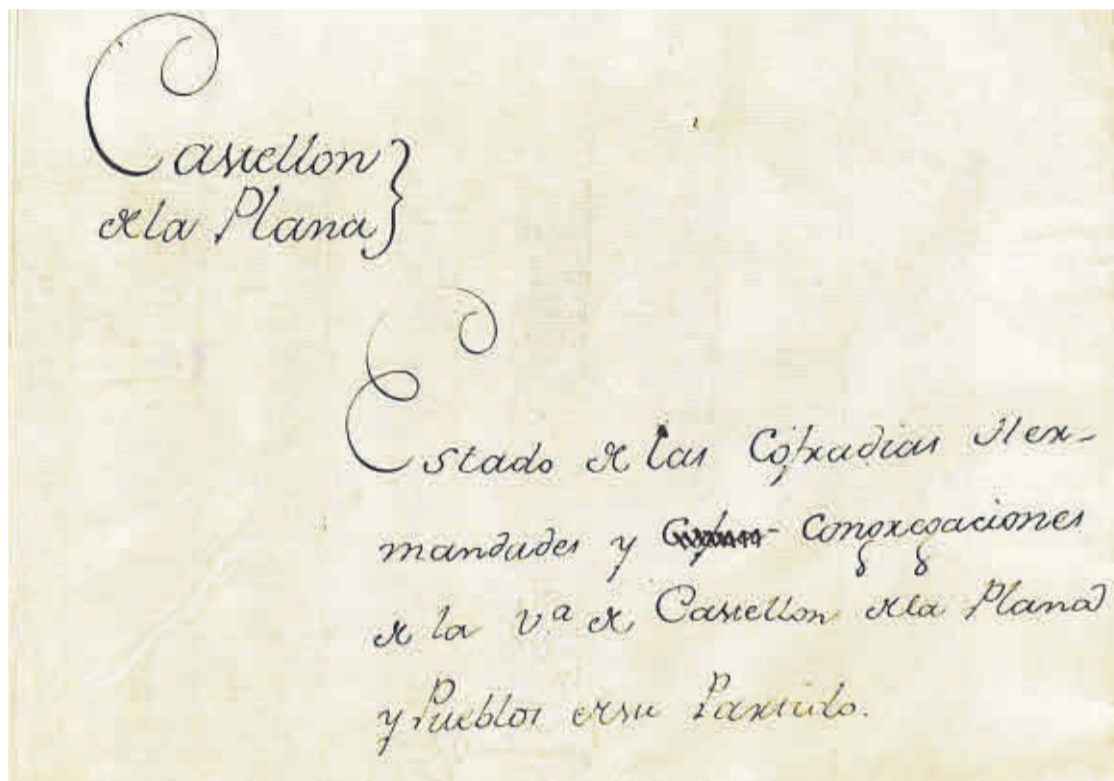 Castellon
de la Plana
Estado de las Cofradias Her-
mandades y Congregaciones
de la v.ª de Castellon de la Plana
y Pueblos de su Partido.